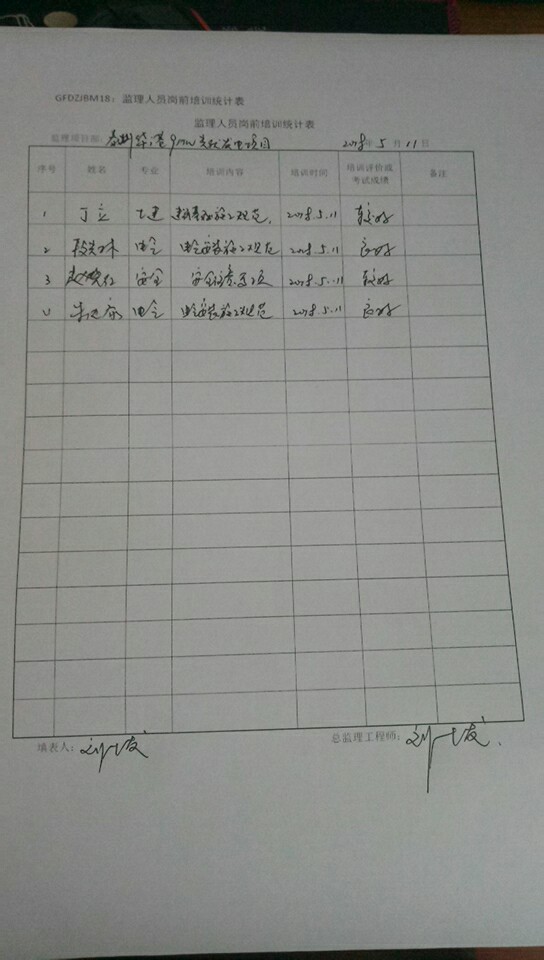 GFDZJBM18：监理人员岗前培训统计表
监理人员岗前培训统计表
监理项目部： 9MW光伏发电项目 2018年 5月 11日
序号 姓名 专业 培训内容 培训时间 培训评价或考试成绩 备注
1 丁立 土建 施工规范. 2018.5.11 较好
2 电气 电气安装施工规范 2018.5.11 良好
3 安全 安全注意事项 2018.5.11 较好
4 电气 电气安装施工规范 2018.5.11 良好
填表人： 总监理工程师：